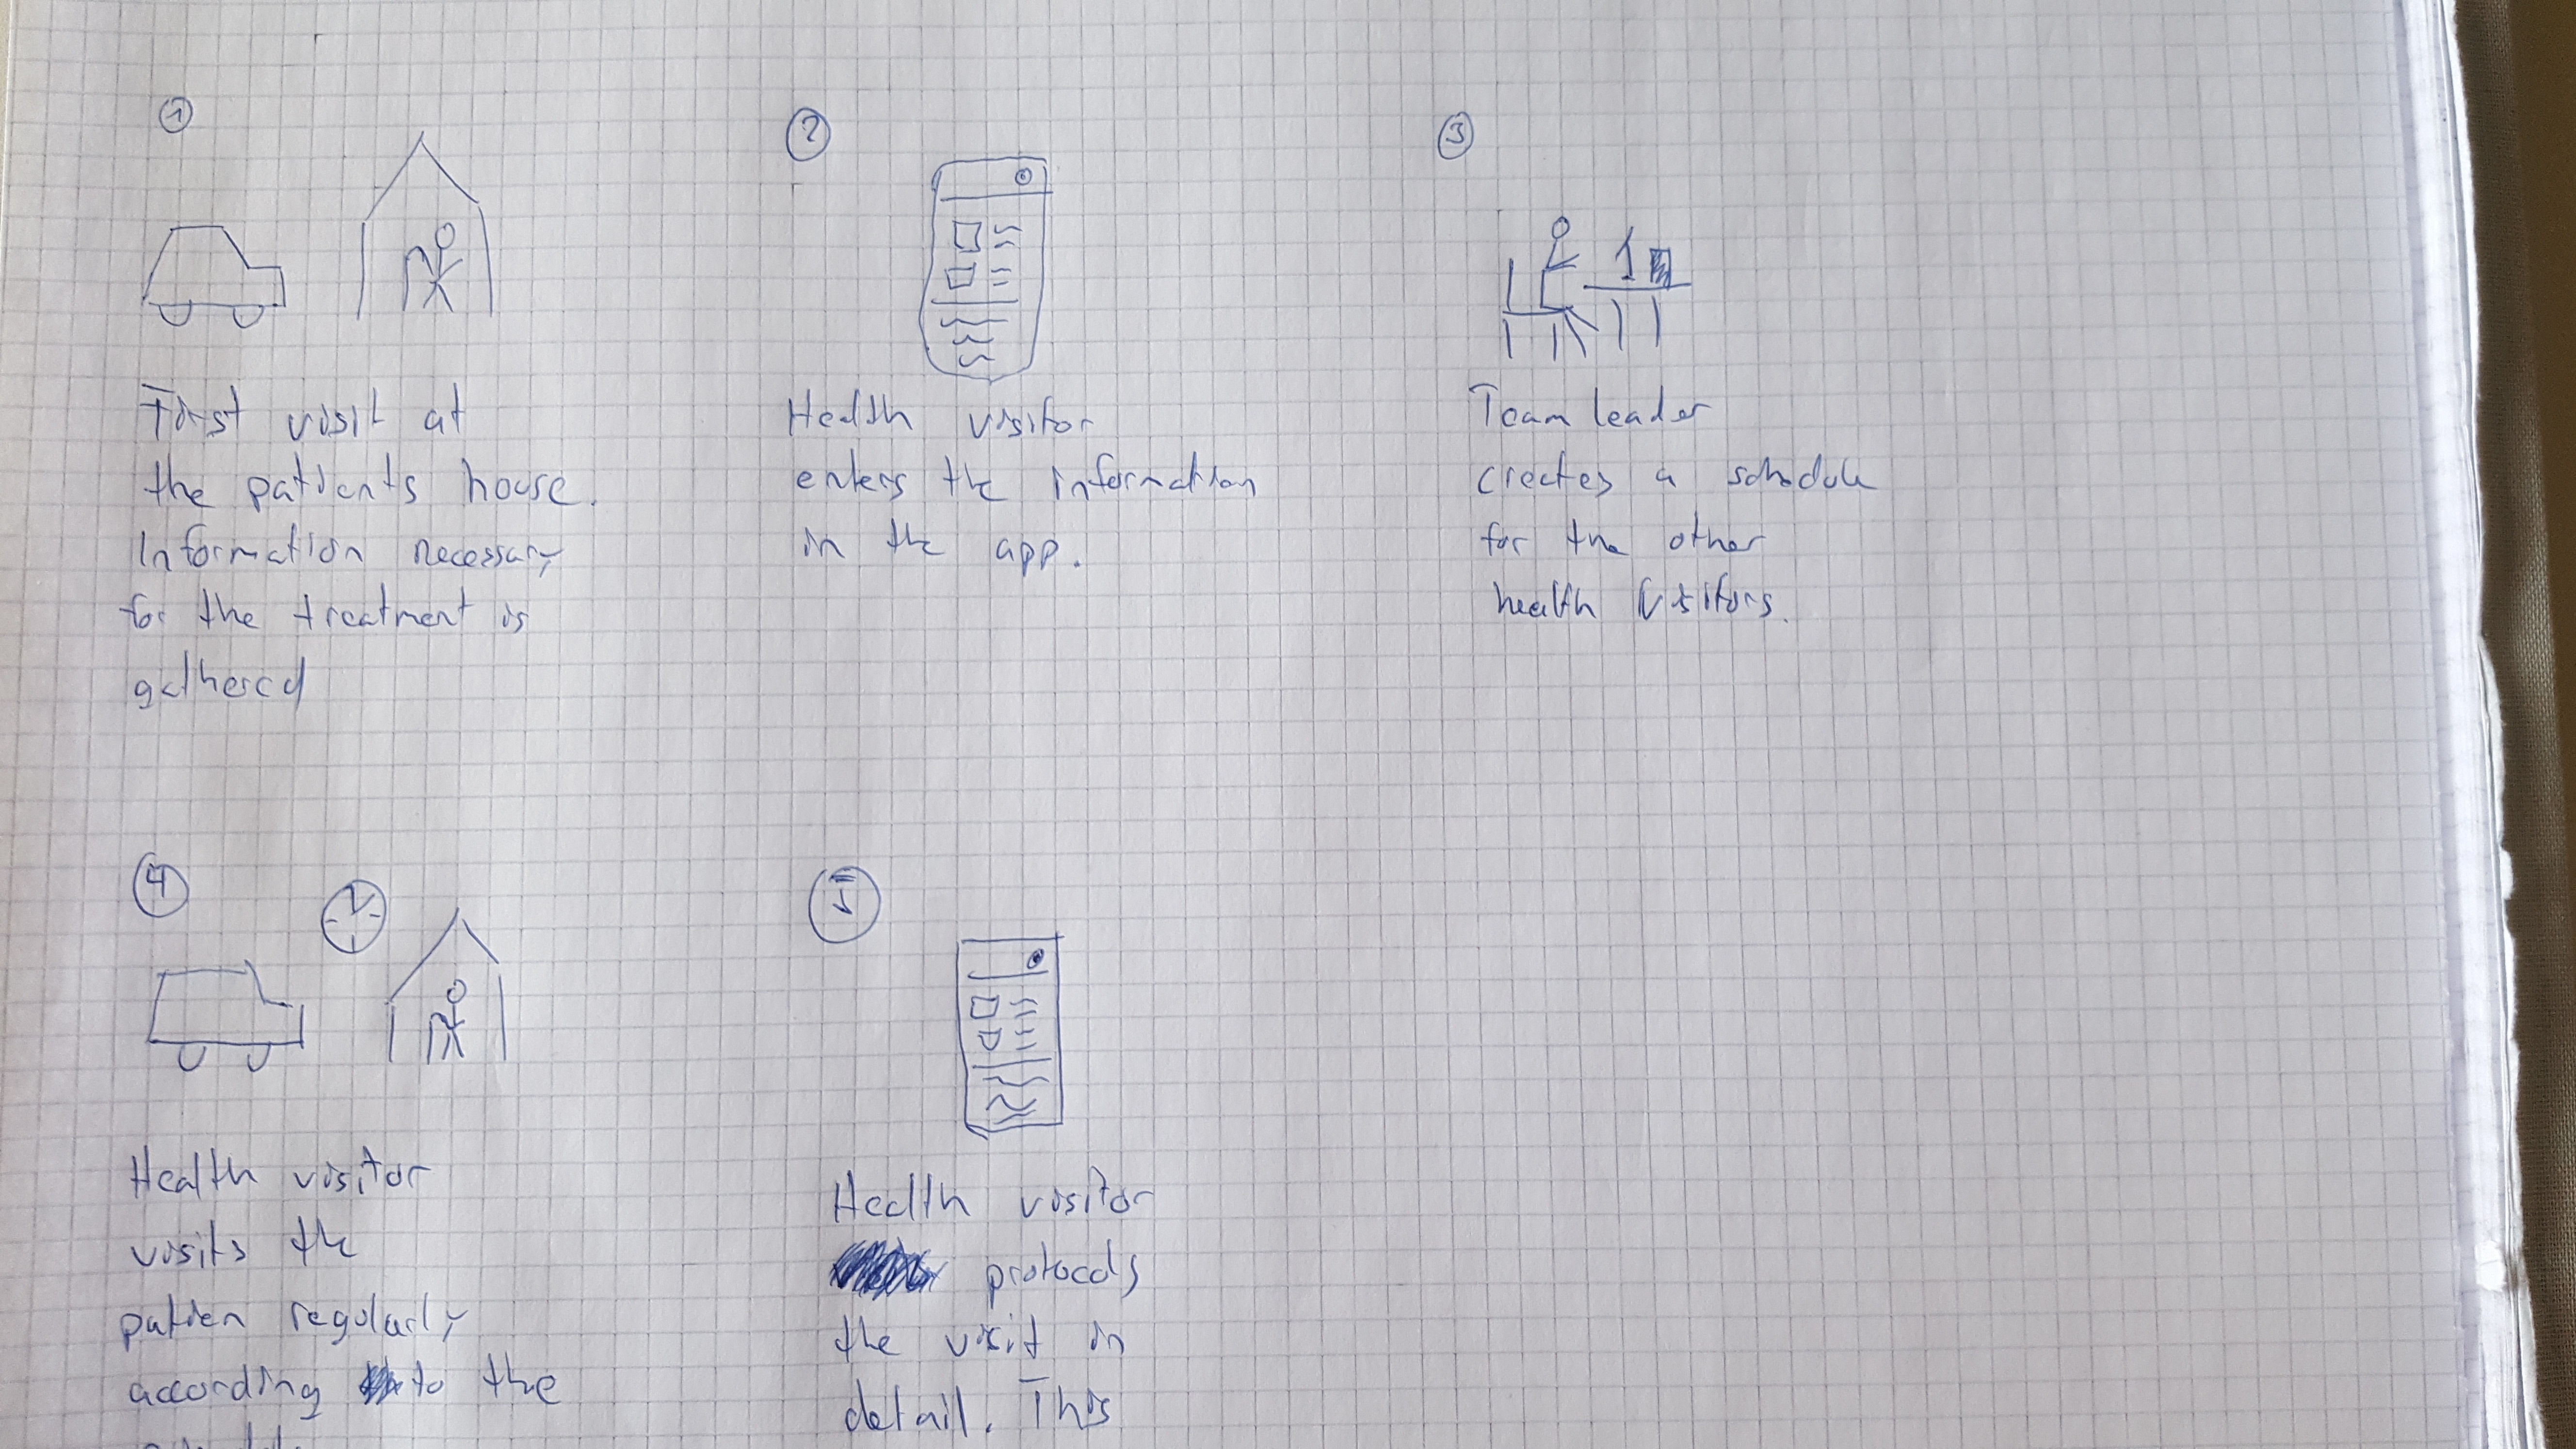 1
First visit at
the patients house.
Information necessary
for the treatment is
gathered
2
Health visitor
enters the information
in the app.
3
Team leader
creates a schedule
for the other
health visitors.
4
Health visitor
visits the
patien regularly
according to the
5
Health visitor
protocols
the visit in
detail. This